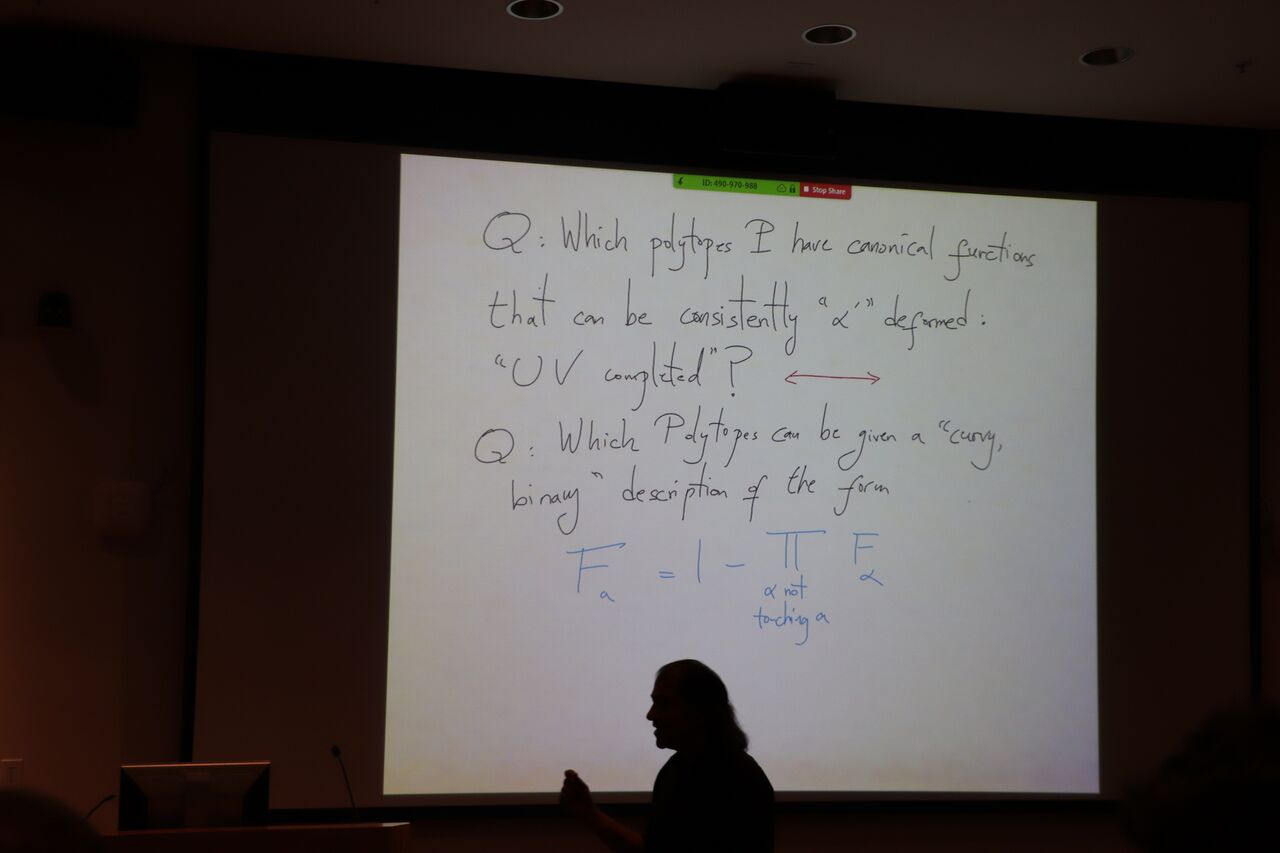 ID: 490-970-988 Stop Share
Q: Which polytopes P have canonical functions
that can be consistently "α'" deformed:
"UV completed"?
Q: Which Polytopes can be given a "curvy,
binary" description of the form
F_a = 1 - ∏ F_α
α not
touching a